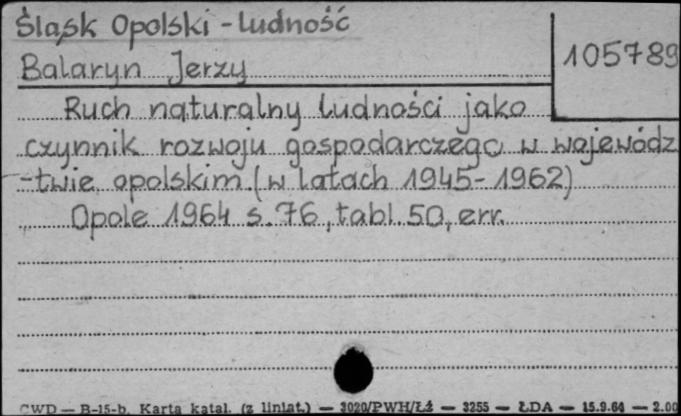 Śląsk Opolski - ludność
105789
Balaryn Jerzy
Ruch naturalny ludności jako
czynnik rozwoju gospodarczego w wojewódz
-twie opolskim. (w latach 1945-1962)
Opole 1964 s. 76, tabl. 50, err.
CWD — B-15-b. Karta katal. (z liniat.) — 3020/PWH/Łż — 3255 — ŁDA — 15.9.64 — 2.00